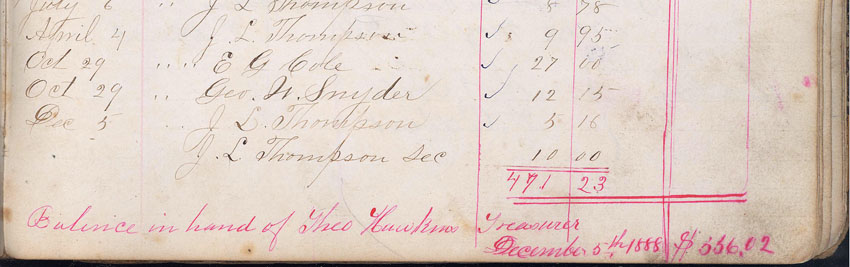 July 6 " J L Thompson 8 78
April 4 J. L. Thompson 9 95
Oct 29 " " E G Cole 27 00
Oct 29 " Geo. W. Snyder 12 15
Dec 5 " J L. Thompson 5 16
J. L Thompson Sec 10 00
471 23
Balence in hand of Theo Hawkins Treasurer
December 5th 1888 $ 336.02